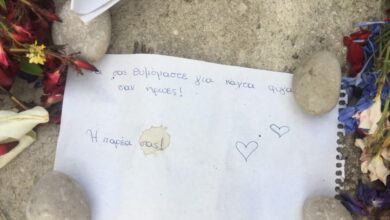 σας θυμόμαστε για πάντα φίλοι
σαν ήρωες!
Η παρέα σας!